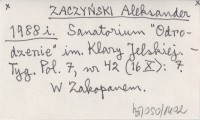 ZACZYŃSKI Aleksander
1988 i. Sanatorium "Odro-
dzenie" im. Klary Jelskiej.-
Tyg. Pol. 7, nr 42 (16 X): 7.
W Zakopanem.